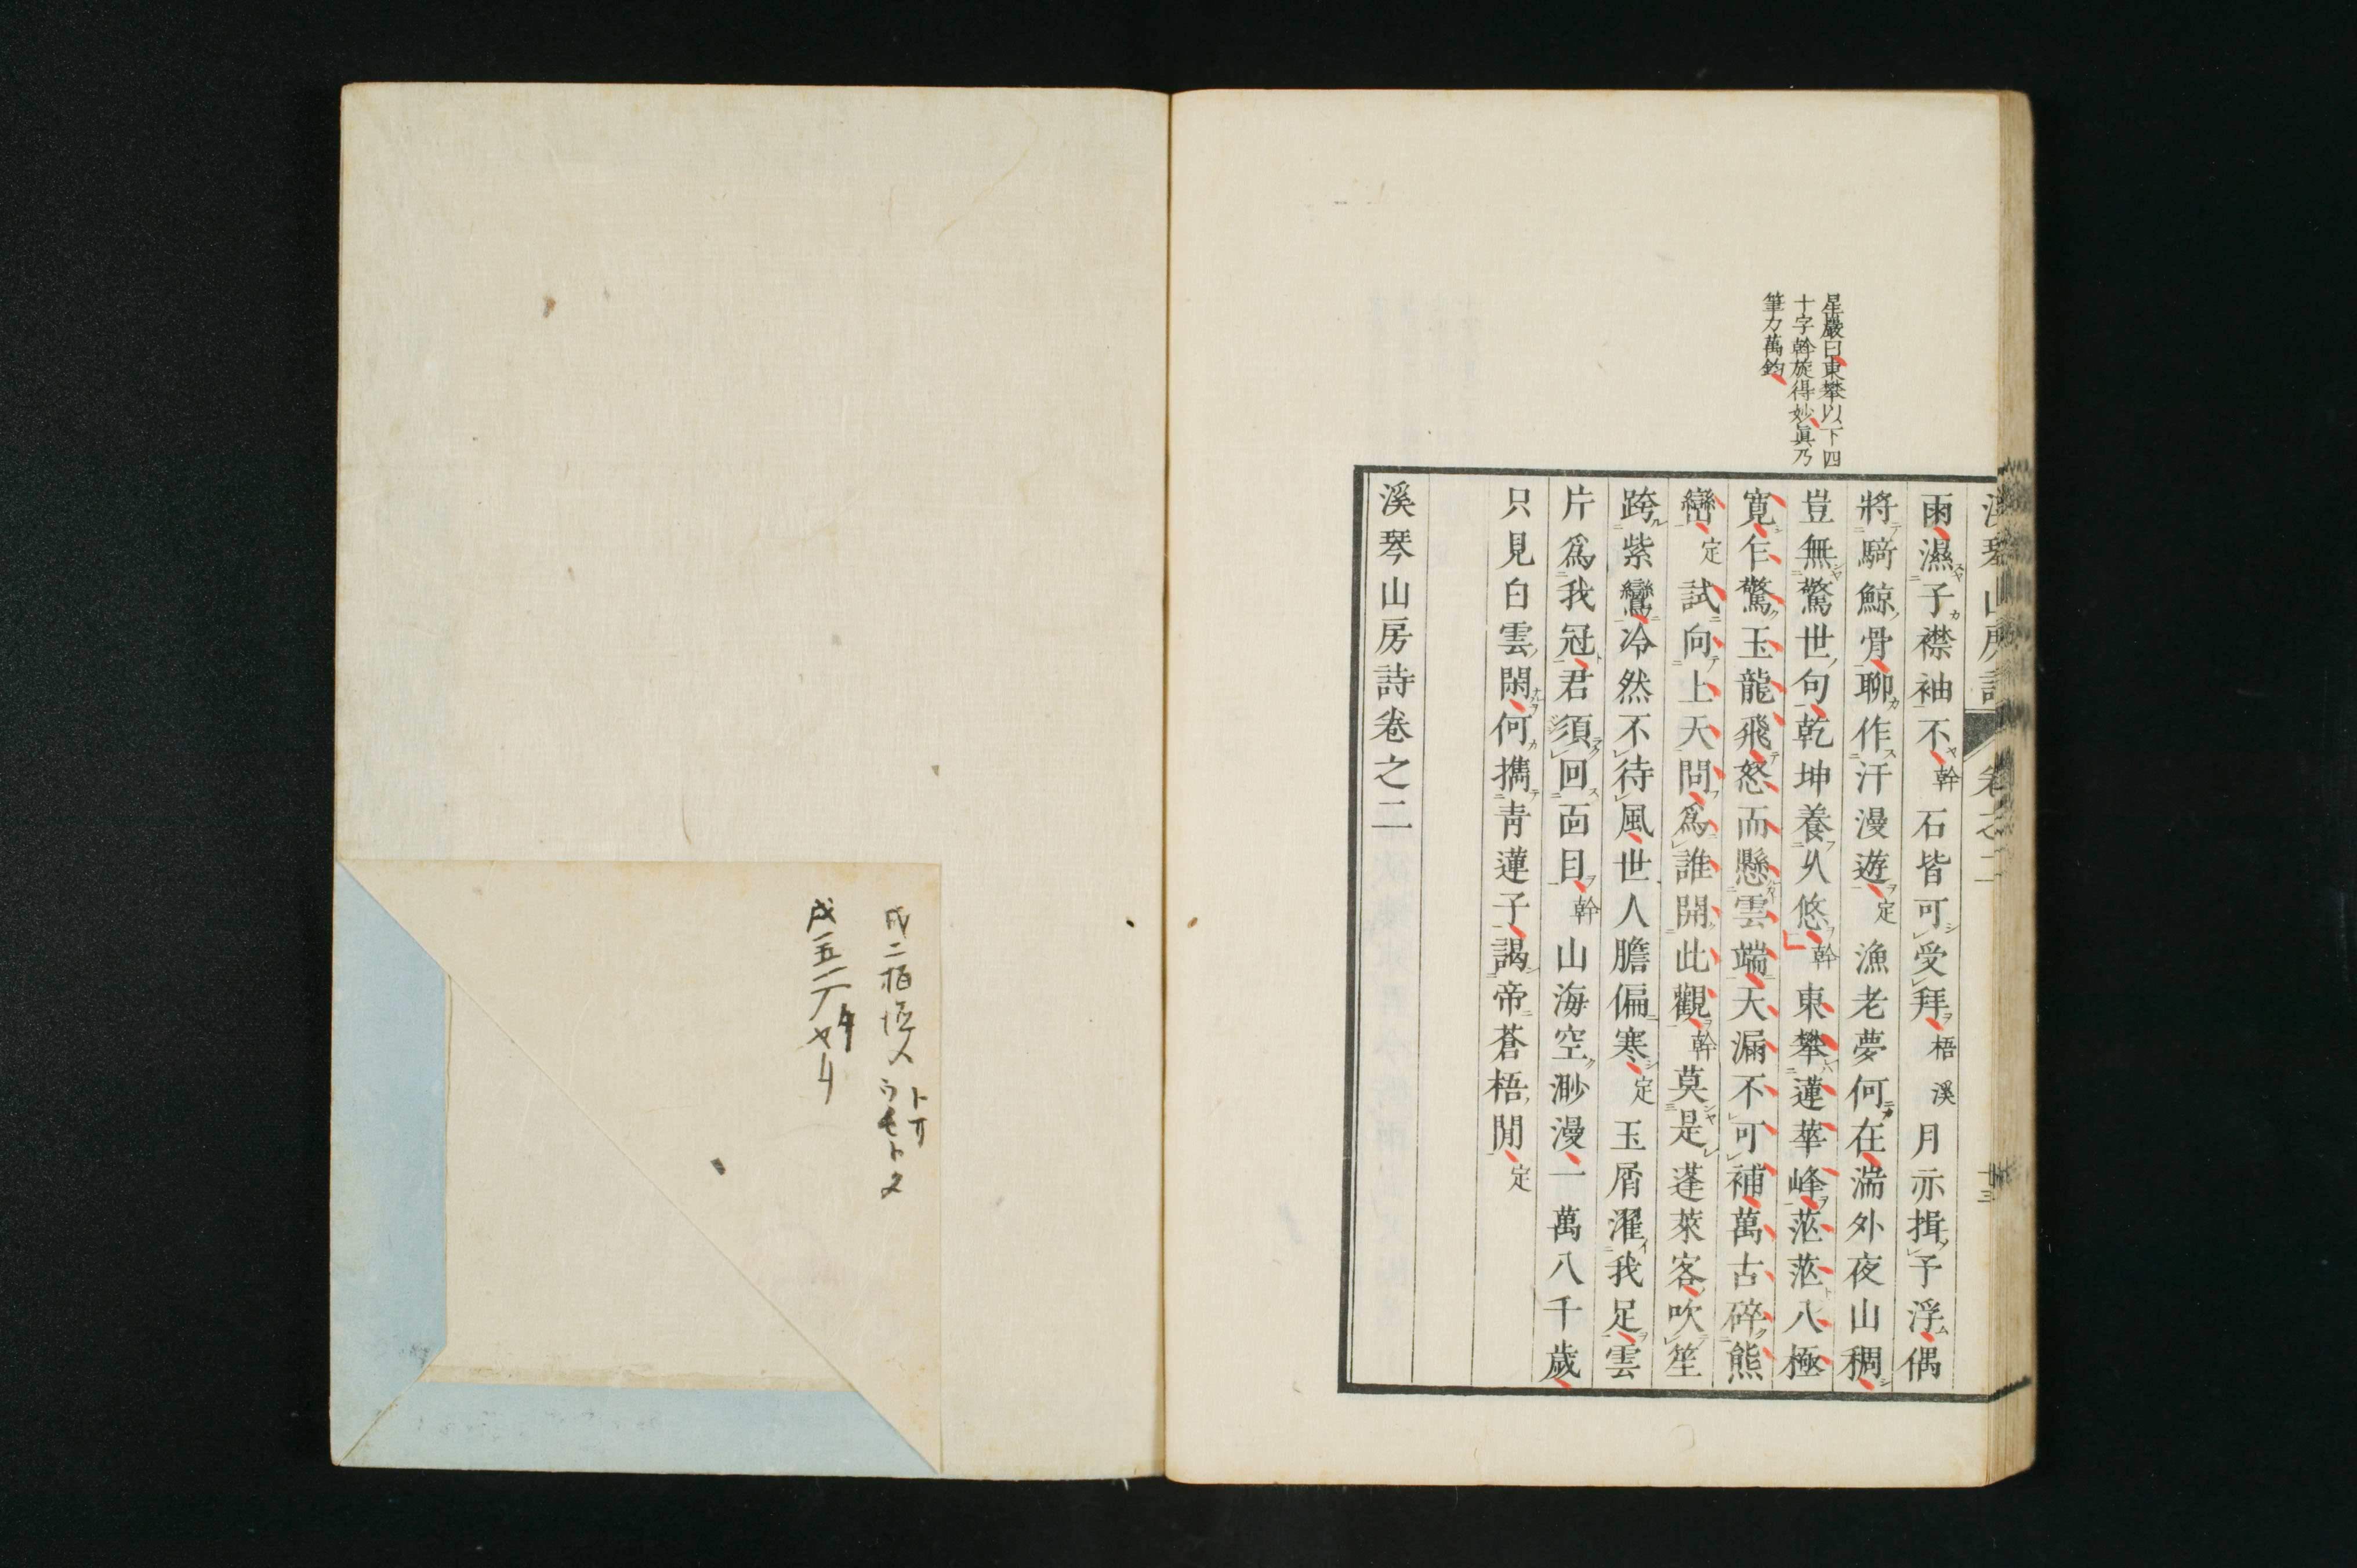 星巖曰東攀以下四
十字斡旋得妙眞乃
筆力萬鈞
溪琴山房詩 卷之二 廿三
雨濕子襟袖不幹石皆可受拜梧溪月亦揖予浮偶
將騎鯨骨聊作汗漫遊定漁老夢何在湍外夜山稠
豈無驚世句乾坤養久悠幹東攀蓮華峰茫茫八極
寬乍驚玉龍飛怒而懸雲端天漏不可補萬古碎熊
巒定試向上天問爲誰開此觀幹莫是蓬萊客吹笙
跨紫鸞冷然不待風世人膽偏寒定玉屑濯我足雲
片爲我冠君須回面目幹山海空渺漫一萬八千歲
只見白雲閑何攜靑蓮子謁帝蒼梧間定
溪琴山房詩卷之二